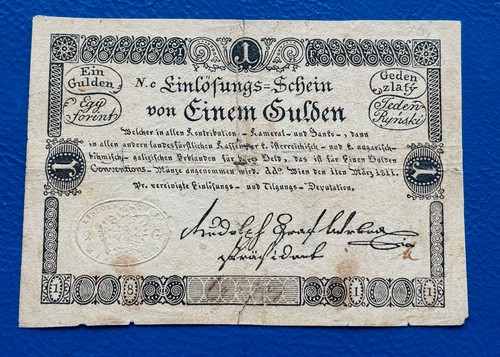 1
Ein Gulden
N. c Einlösungs=Schein
Geden zlatý
Egy Forint
von Einem Gulden
Jeden Ryński
Welcher in allen Kontribution-, Kameral- und Banko-, dann
in allen andern landesfürstlichen Kassen der k. österreichisch- und k. ungarisch-
böhmisch- galizischen Erblanden für Geld, das ist für Einen Gulden
Conventions-Münze angenommen wird. ddo. Wien den 1ten März 1811.
Pr. vereinigte Einlösungs- und Tilgungs-Deputation.
1
1
Rudolph Graf Wrbna
Präsident
1 8 1 1